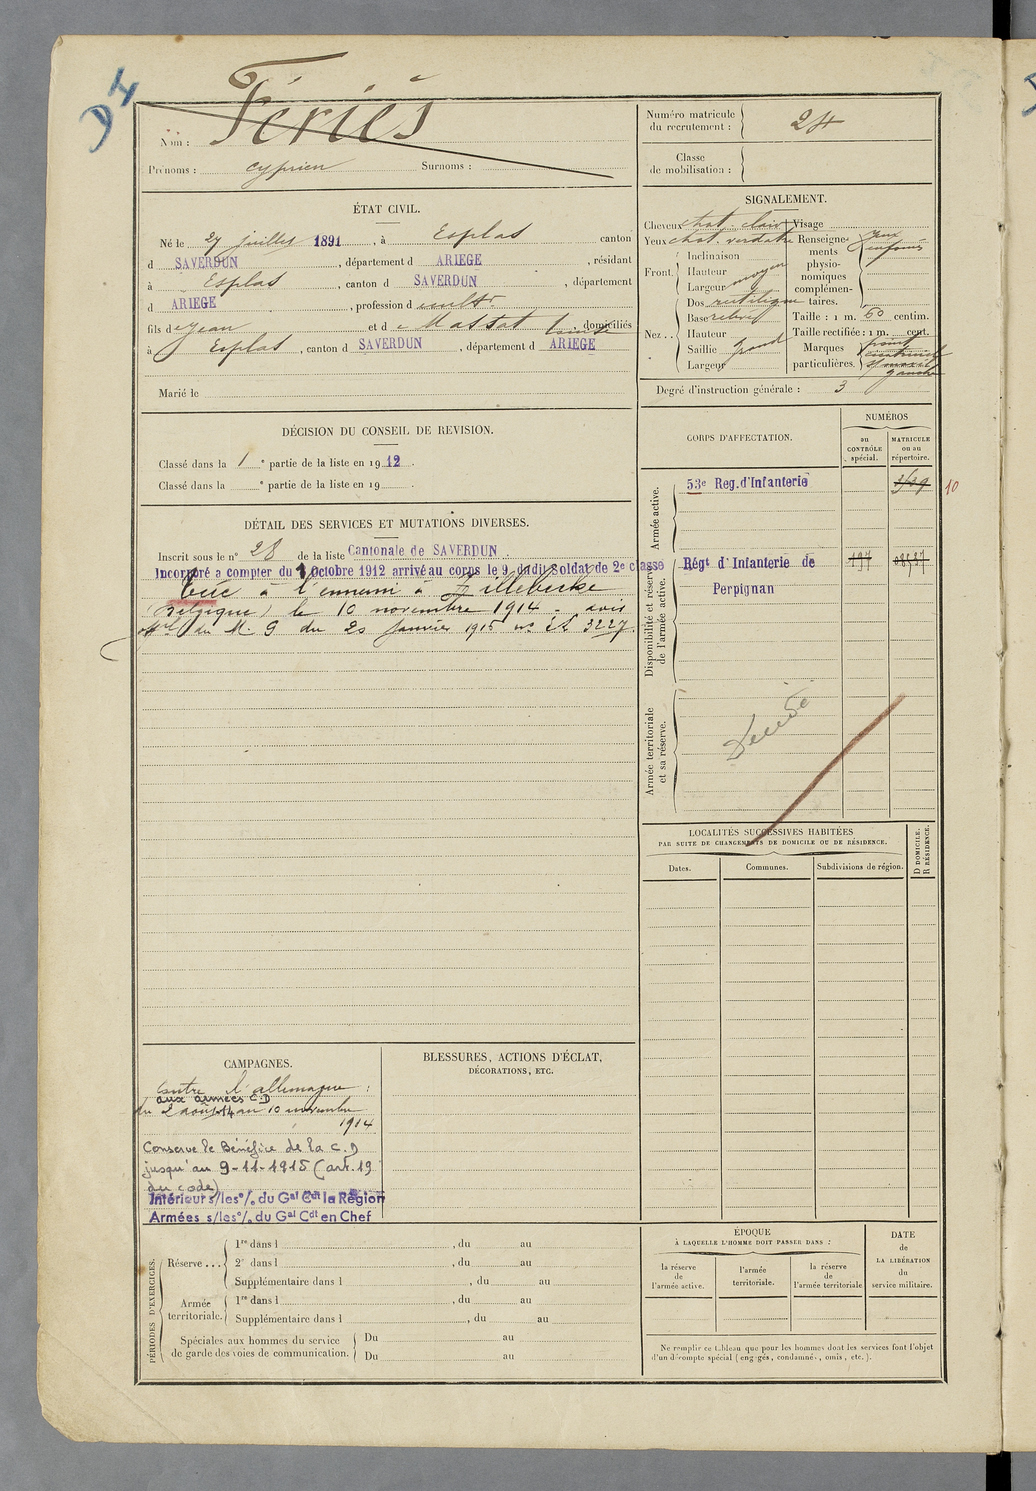 D4
Nom : Fériés
Prénoms : Cyprien Surnoms :
Numéro matricule du recrutement : 24
Classe de mobilisation :
ÉTAT CIVIL.
Né le 27 juillet 1891, à Esplas canton
d SAVERDUN, département d ARIEGE, résidant
à Esplas, canton d SAVERDUN, département
d ARIEGE, profession d cultr
fils de Jean et de Massat Louise domiciliés
à Esplas, canton d SAVERDUN, département d ARIEGE
Marié le
SIGNALEMENT.
Cheveux chat. clair
Yeux chat. verdatre
Front. Inclinaison
Hauteur moyen
Largeur
Nez... Dos rectiligne
Base relevé
Hauteur
Saillie grand
Largeur
Visage
Renseignements physionomiques complémentaires. yeux enfoncés
Taille : 1 m. 60 centim.
Taille rectifiée : 1 m. cent.
Marques particulières.
Degré d'instruction générale : 3
DÉCISION DU CONSEIL DE REVISION.
Classé dans la 1e partie de la liste en 1912.
Classé dans la e partie de la liste en 19 .
CORPS D'AFFECTATION.
NUMÉROS
au CONTRÔLE spécial.
MATRICULE ou au répertoire.
Armée active.
53e Reg. d'Infanterie
10
Disponibilité et réserve de l'armée active.
Régt d'Infanterie de Perpignan 197
Armée territoriale et sa réserve.
DÉTAIL DES SERVICES ET MUTATIONS DIVERSES.
Inscrit sous le n° 28 de la liste Cantonale de SAVERDUN
Incorporé a compter du 1 Octobre 1912 arrivé au corps le 9 dudit Soldat de 2e classe
Tué à l'ennemi à Zillebecke
(Belgique) le 10 novembre 1914 - avis
du M. G du 20 Janvier 1915 n° 3227.
Décédé
LOCALITÉS SUCCESSIVES HABITÉES
PAR SUITE DE CHANGEMENTS DE DOMICILE OU DE RÉSIDENCE.
Dates.
Communes.
Subdivisions de région.
D DOMICILE.
R RÉSIDENCE.
CAMPAGNES.
Contre l'allemagne :
aux armées C.D
du 2 août 14 au 10 novembre
1914
Conserve le Bénéfice de la C.D
jusqu'au 9-11-1915 (art. 19
du code)
Intérieur s/les % du Gal Cdt la Région
Armées s/les % du Gal Cdt en Chef
BLESSURES, ACTIONS D'ÉCLAT,
DÉCORATIONS, ETC.
PÉRIODES D'EXERCICES.
Réserve... 1re dans l , du au
2e dans l , du au
Supplémentaire dans l , du au
Armée territoriale. 1re dans l , du au
Supplémentaire dans l , du au
Spéciales aux hommes du service de garde des voies de communication.
Du au
Du au
ÉPOQUE
À LAQUELLE L'HOMME DOIT PASSER DANS :
la réserve de l'armée active.
l'armée territoriale.
la réserve de l'armée territoriale
DATE
de
LA LIBÉRATION
du
service militaire.
Ne remplir ce tableau que pour les hommes dont les services font l'objet
d'un décompte spécial (engagés, condamnés, omis, etc.).